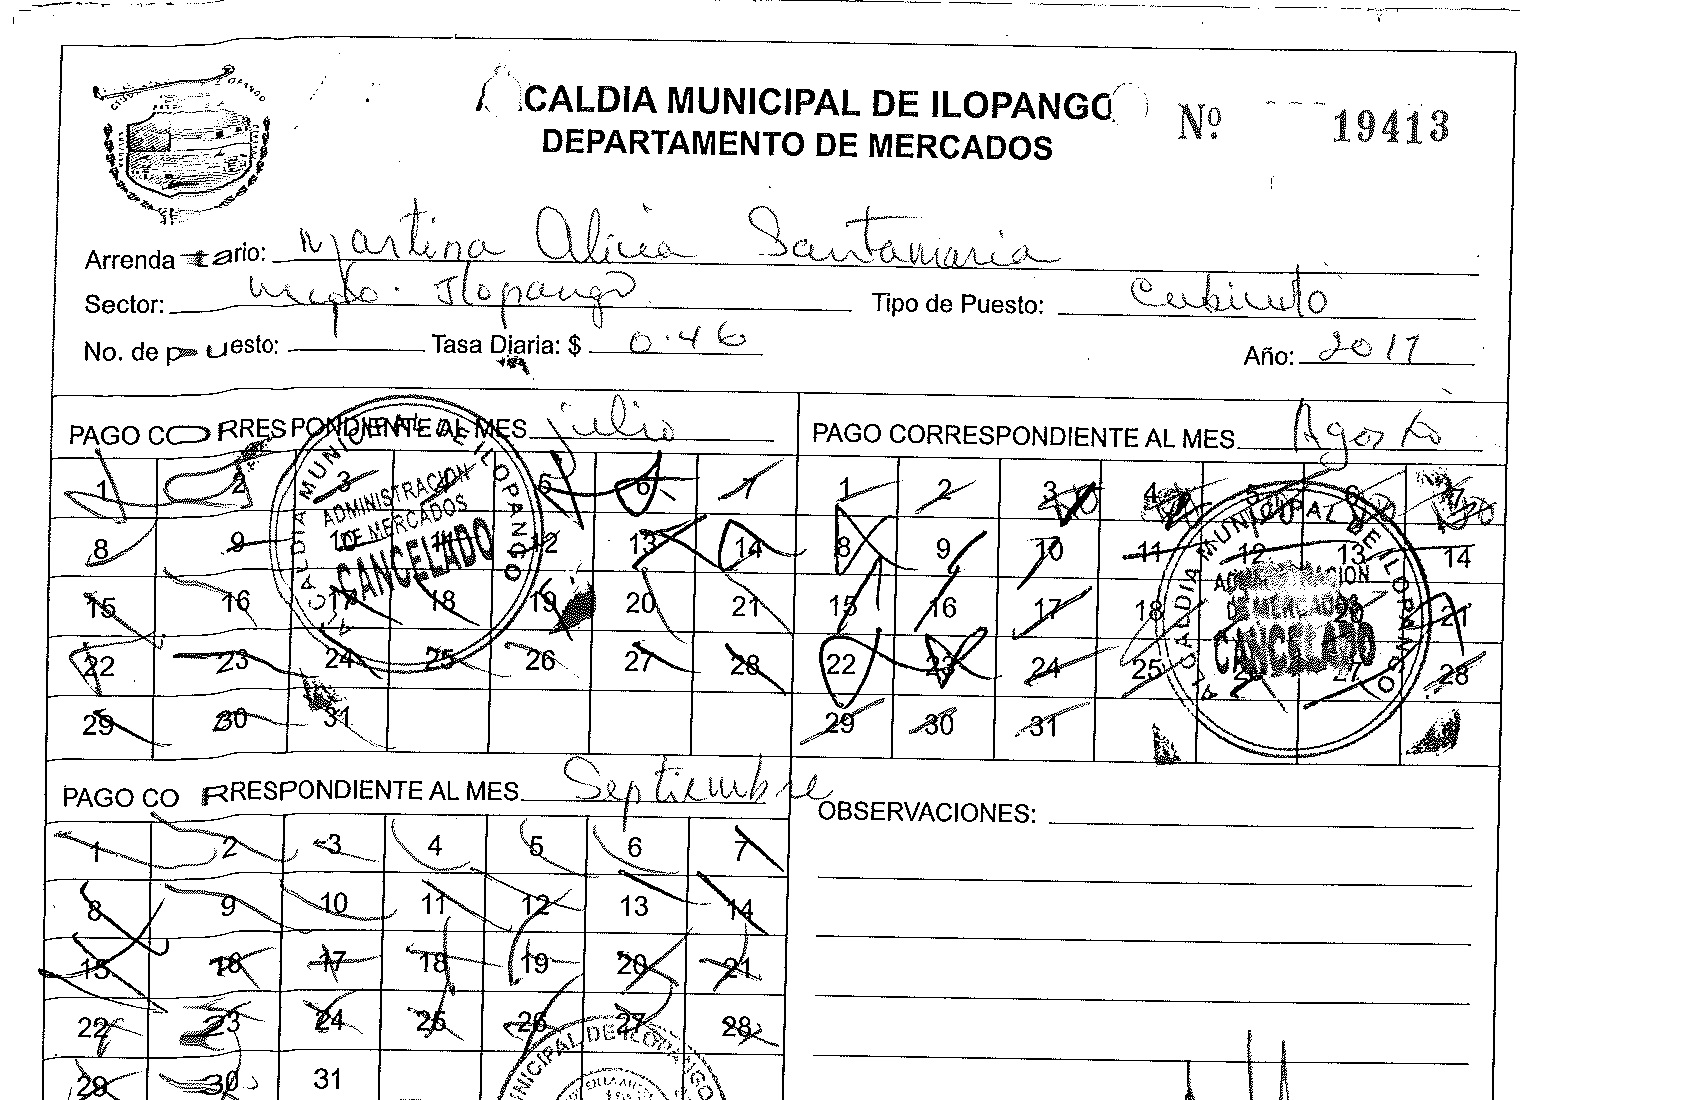 ALCALDIA MUNICIPAL DE ILOPANGO
Nº 19413
DEPARTAMENTO DE MERCADOS
Arrendatario: Martina Alicia Santamaria
Sector: Mcdo. Ilopango Tipo de Puesto: Cubiculo
No. de puesto: Tasa Diaria: $ 0.46 Año: 2017
PAGO CORRESPONDIENTE AL MES julio
1 2 3 4 5 6 7
8 9 10 11 12 13 14
15 16 17 18 19 20 21
22 23 24 25 26 27 28
29 30 31
ALCALDIA MUNICIPAL DE ILOPANGO
ADMINISTRACION
DE MERCADOS
CANCELADO
PAGO CORRESPONDIENTE AL MES Agosto
1 2 3 4 5 6 7
8 9 10 11 12 13 14
15 16 17 18 20 21
22 23 24 25 27 28
29 30 31
ALCALDIA MUNICIPAL DE ILOPANGO
ADMINISTRACION
DE MERCADOS
CANCELADO
PAGO CORRESPONDIENTE AL MES Septiembre
1 2 3 4 5 6 7
8 9 10 11 12 13 14
15 16 17 18 19 20 21
22 23 24 25 26 27 28
29 30 31
MUNICIPAL DE ILOPANGO
OBSERVACIONES: